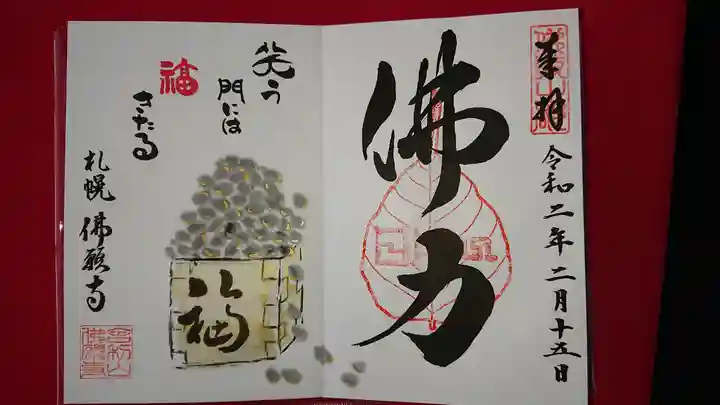 奉拝
令和二年二月十五日
佛力
笑う
門には
福
きたる
八福
札幌 佛願寺